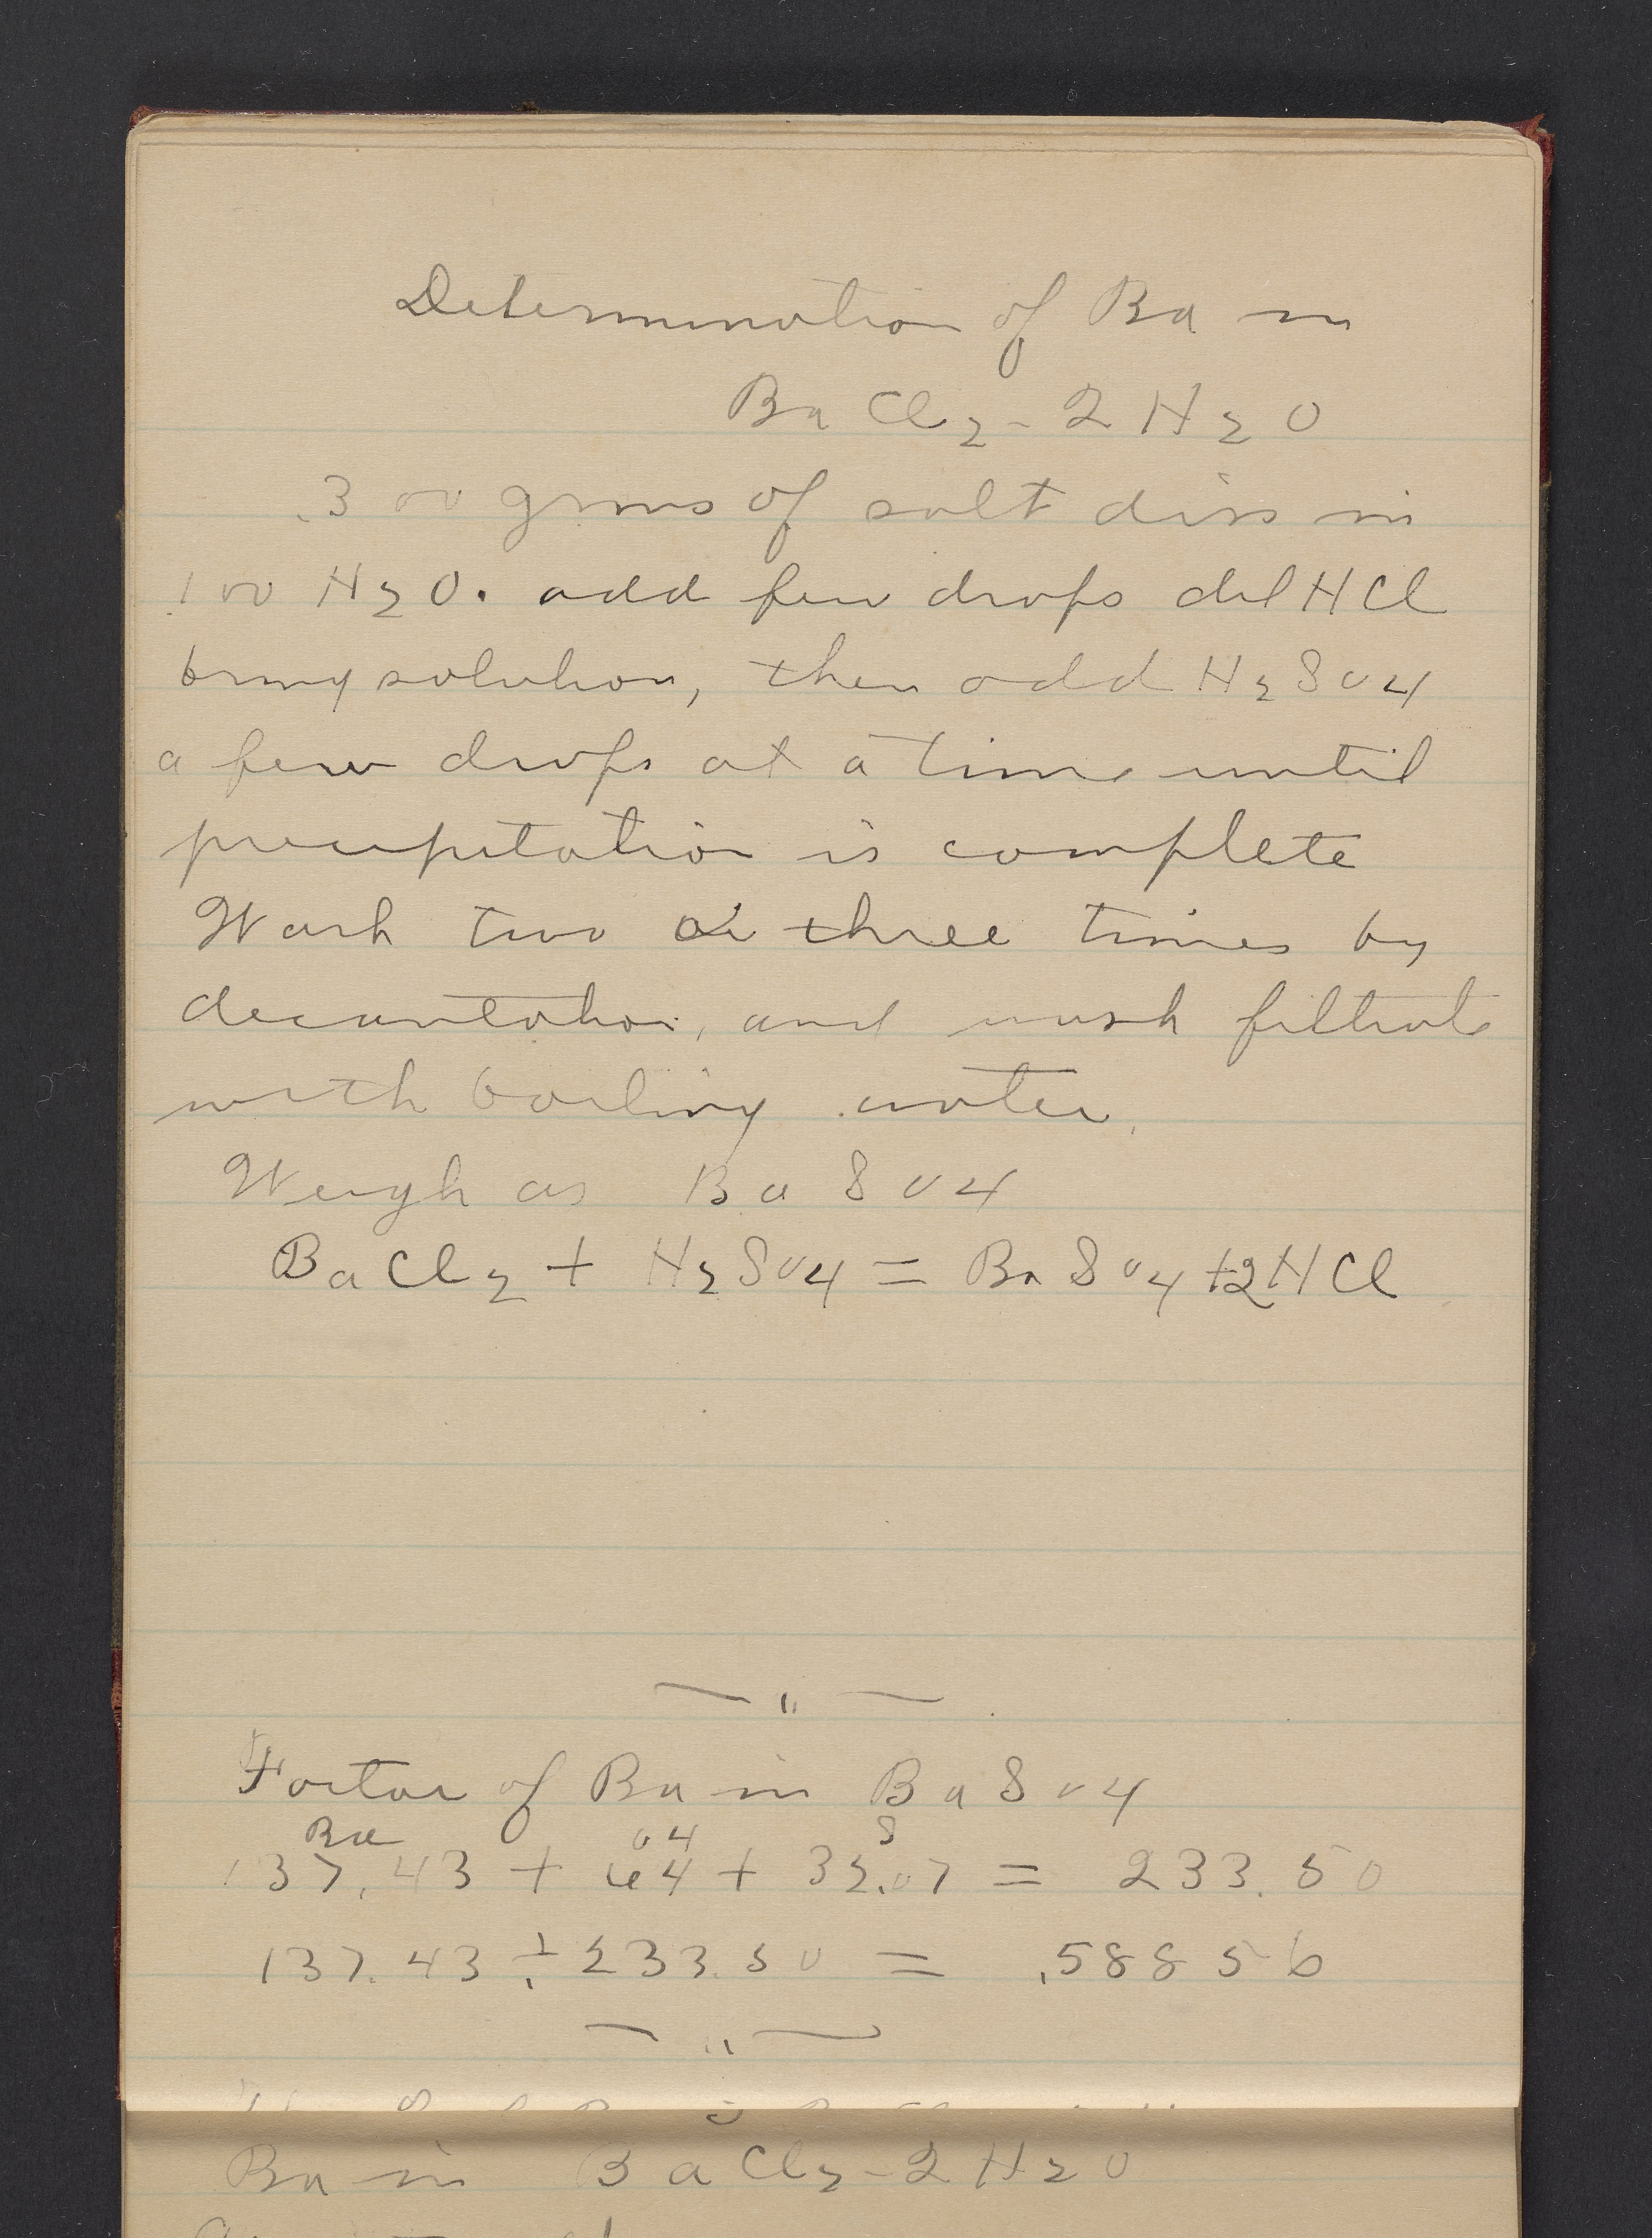 Determination of Ba in
BaCl2-2H2O
.300 grms of salt diss in
100 H2O. add few drops dil HCl
bring solution, then add H2SO4
a few drops at a time until
precipitation is complete
Wash two or three times by
decantation, and wash filtrate
with boiling water.
Weigh as BaSO4
BaCl2 + H2SO4 = BaSO4 + 2HCl
Factor of Ba in BaSO4
Ba O4 S
137.43 + 64 + 32.07 = 233.50
137.43 ÷ 233.50 = .58856
Ba in BaCl2-2H2O